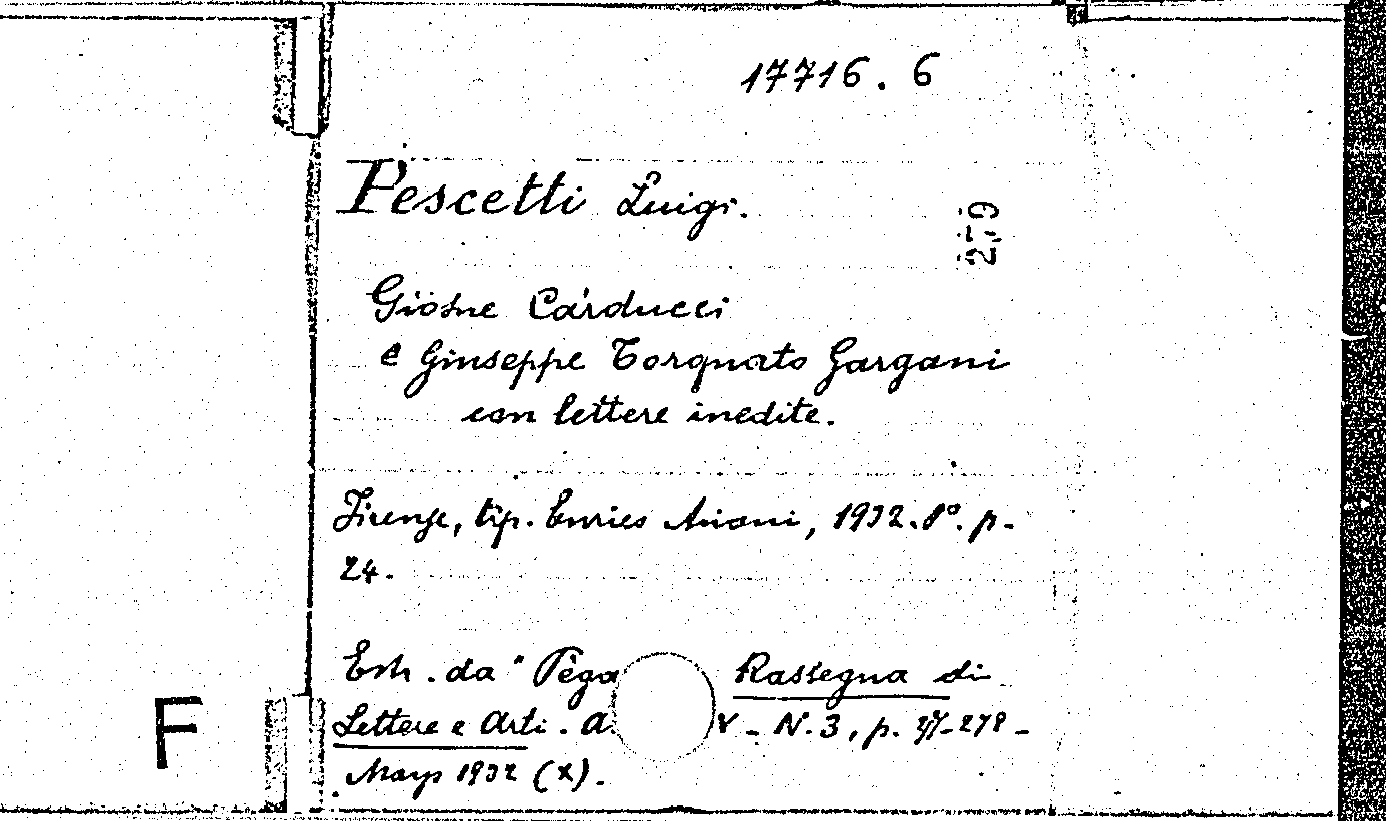 17716. 6
Pescetti Luigi.
279
Giosue Carducci
e Giuseppe Torquato Gargani
con lettere inedite.
Firenze, tip. Enrico Ariani, 1932. 8°. p.
24.
Estr. da "Pèga Rassegna di
Lettere e Arti. A. V - N. 3, p. -278 -
Marzo 1932 (X).
F